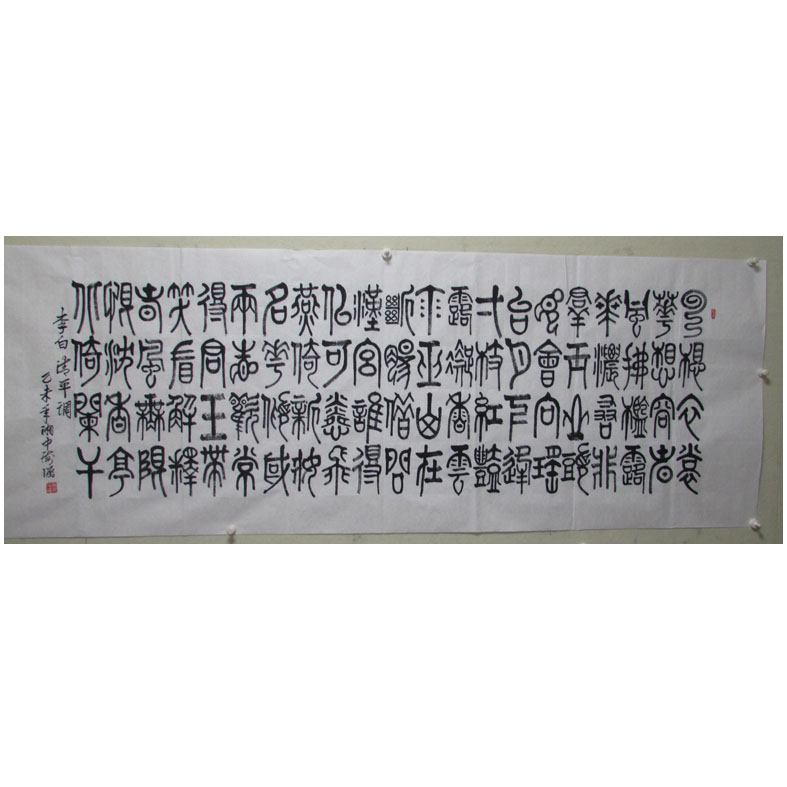 雲想衣裳
花想容春
風拂檻露
華濃若非
群玉山頭
見會向瑤
台月下逢
一枝紅豔
露凝香雲
雨巫山枉
斷腸借問
漢宮誰得
似可憐飛
燕倚新妝
名花傾國
兩相歡常
得君王帶
笑看解釋
春風無限
恨沉香亭
北倚闌干
李白清平調
乙未年湘中